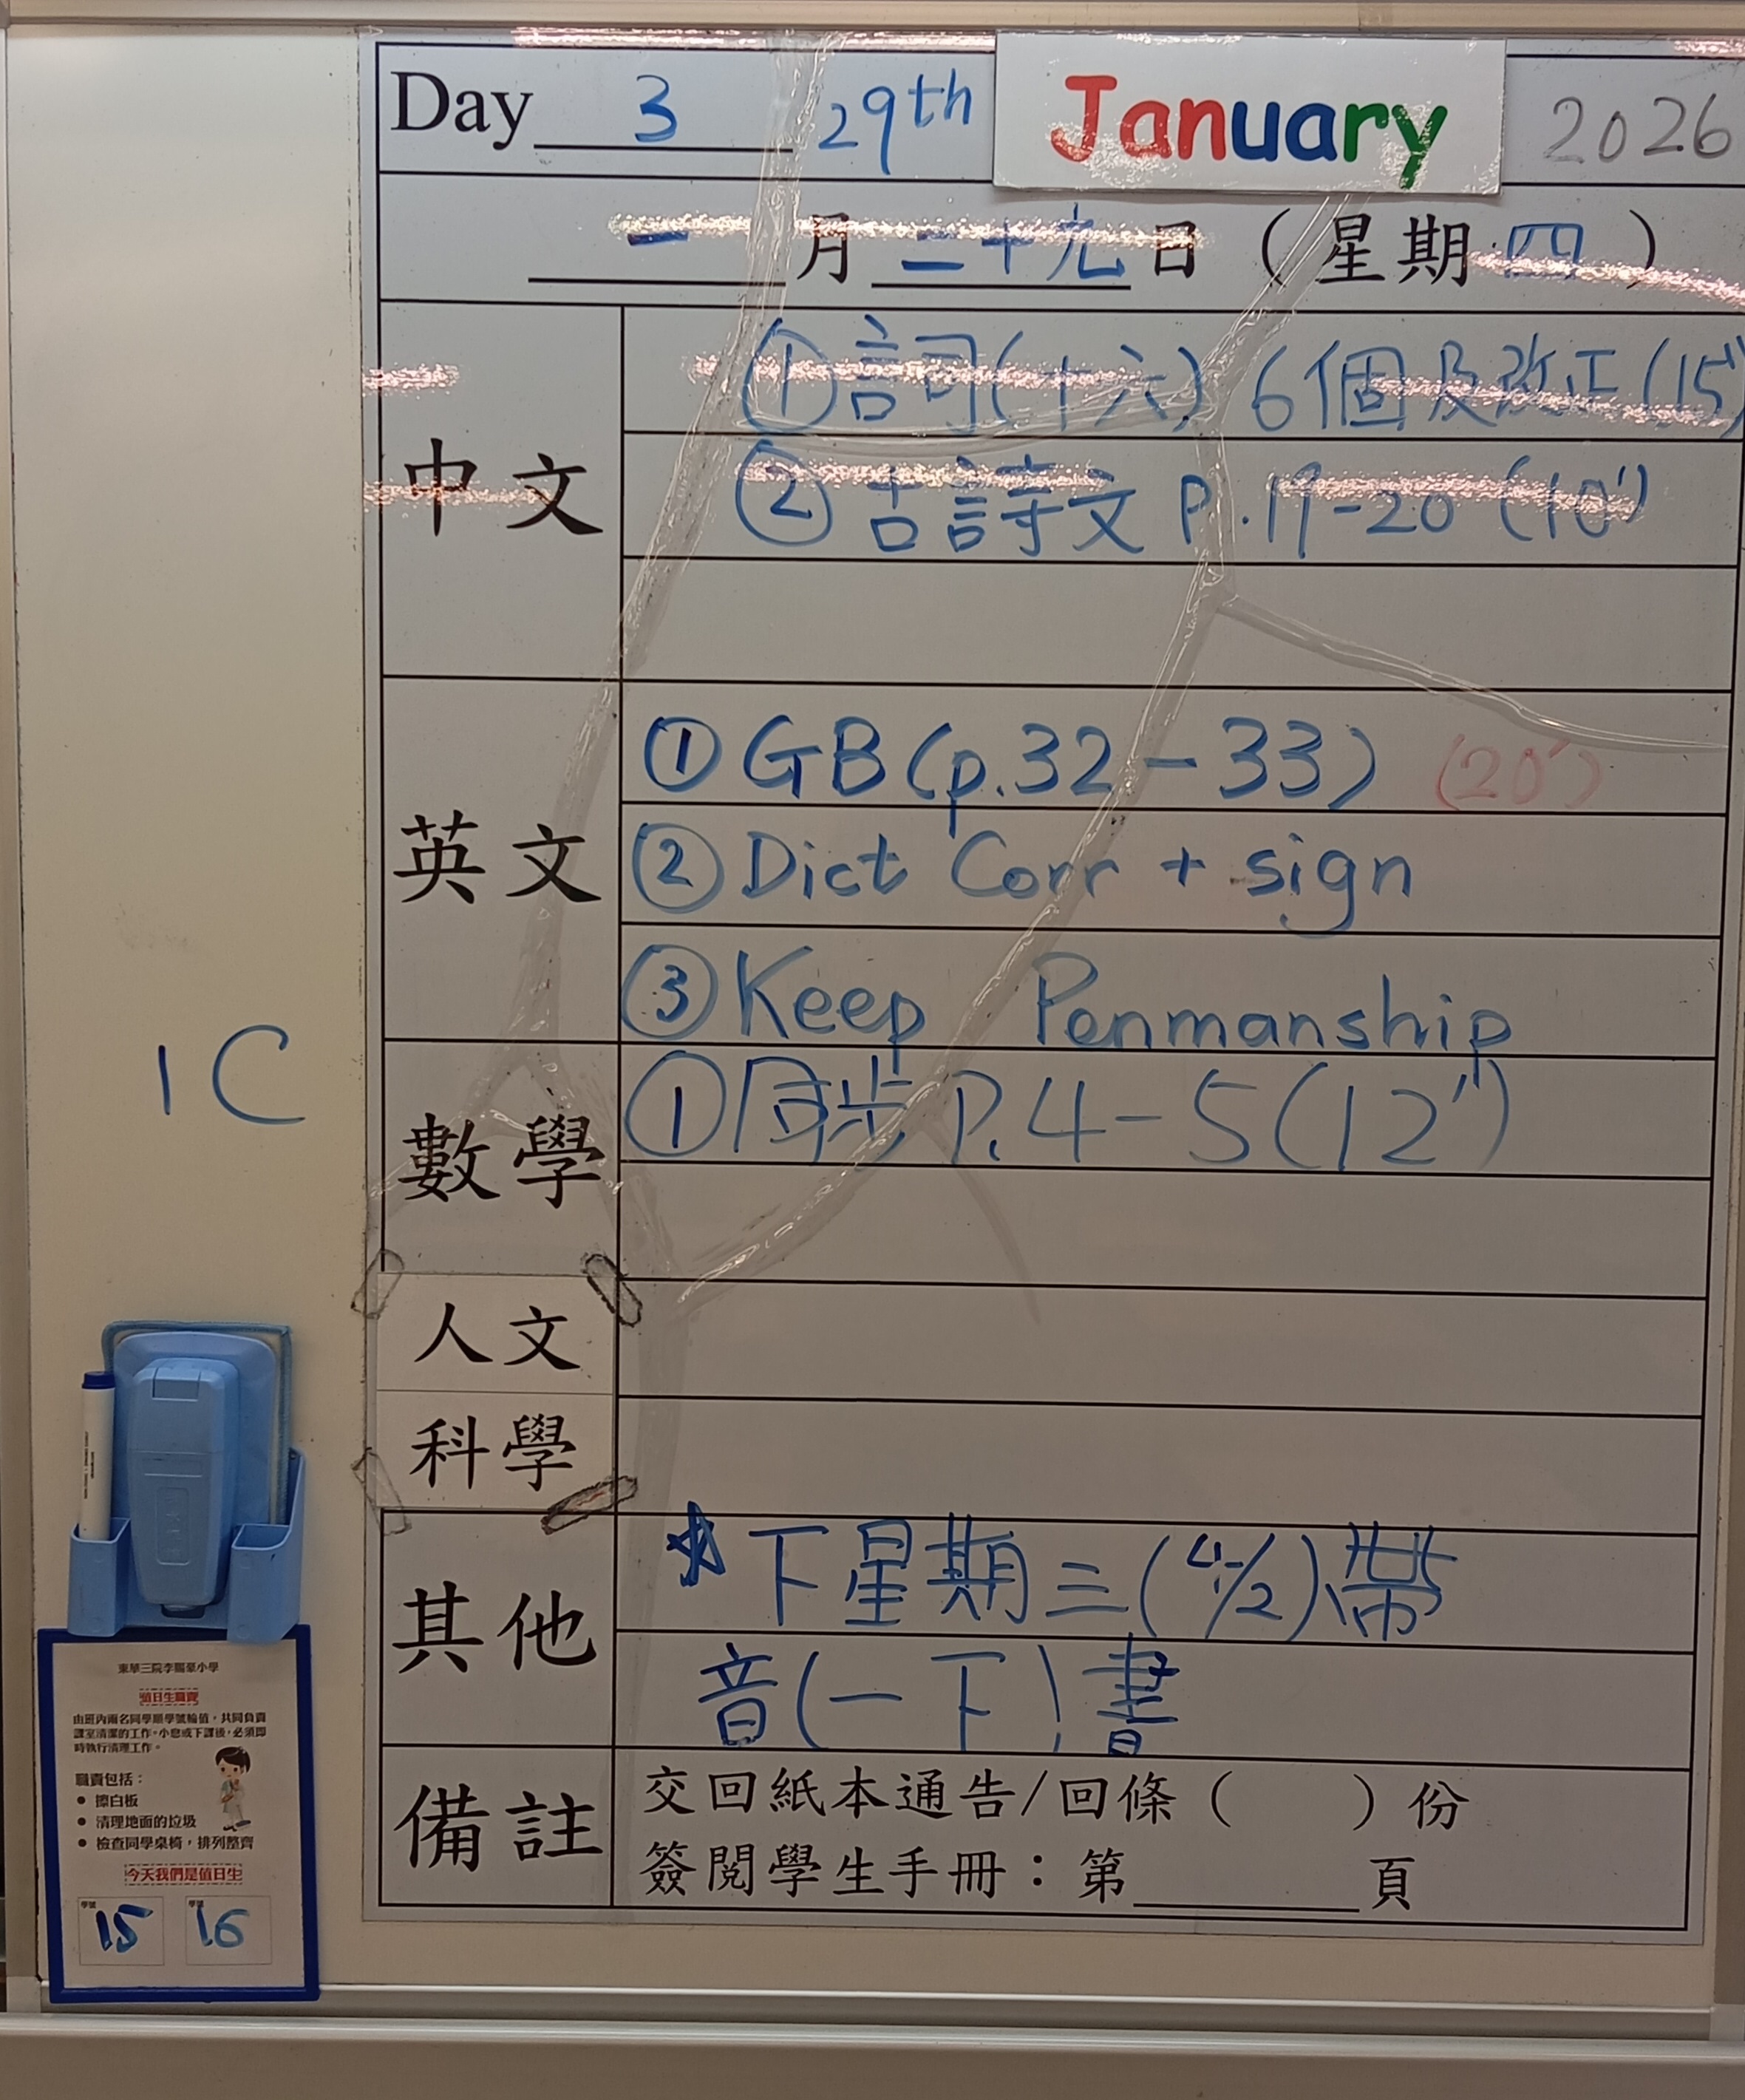 Day 3 29th January 2026
一月二十九日（星期四）
中文
①詞(十六) 6個及改正(15')
②古詩文 P.19-20 (10')
英文
①GB(p.32-33) (20')
②Dict Corr + sign
③Keep Penmanship
數學
①同步P.4-5(12')
人文
科學
其他
☆下星期三(4/2)帶
音(一下)書
備註
交回紙本通告/回條（　）份
簽閱學生手冊：第＿＿＿頁
1C
東華三院李賜豪小學
值日生職責
由班內兩名同學順學號輪值，共同負責
課室清潔的工作。小息或下課後，必須即
時執行清理工作。
職責包括：
● 擦白板
● 清理地面的垃圾
● 檢查同學桌椅，排列整齊
今天我們是值日生
學號 15 學號 16